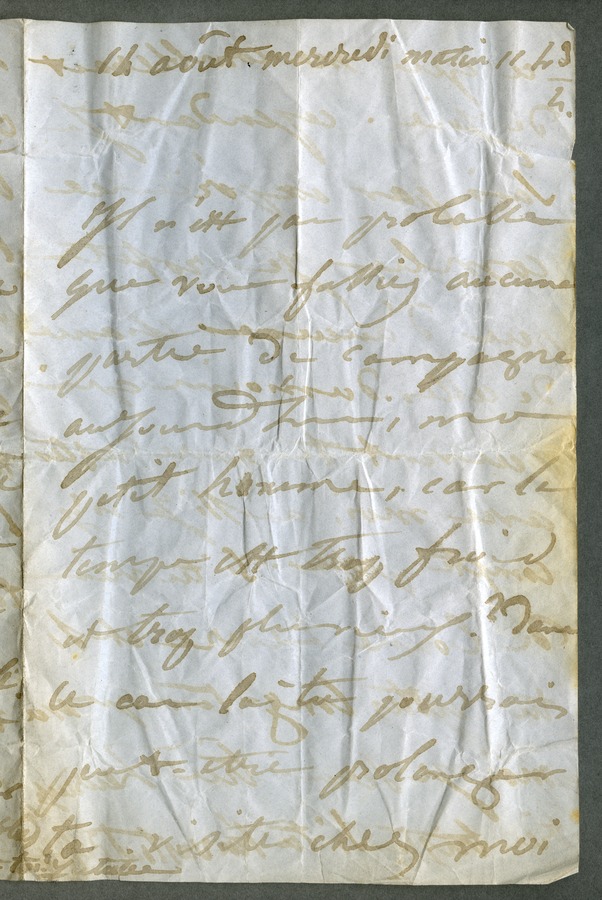 14 août mercredi matin 11 h 3/4.
Il n'est pas probable
que vous fassiez aucune
partie de campagne
aujourd'hui, mon
petit homme, car le
temps est trop froid
et trop pluvieux. Dans
ce cas là, tu pourrais
peut-être prolonger
ta visite chez moi